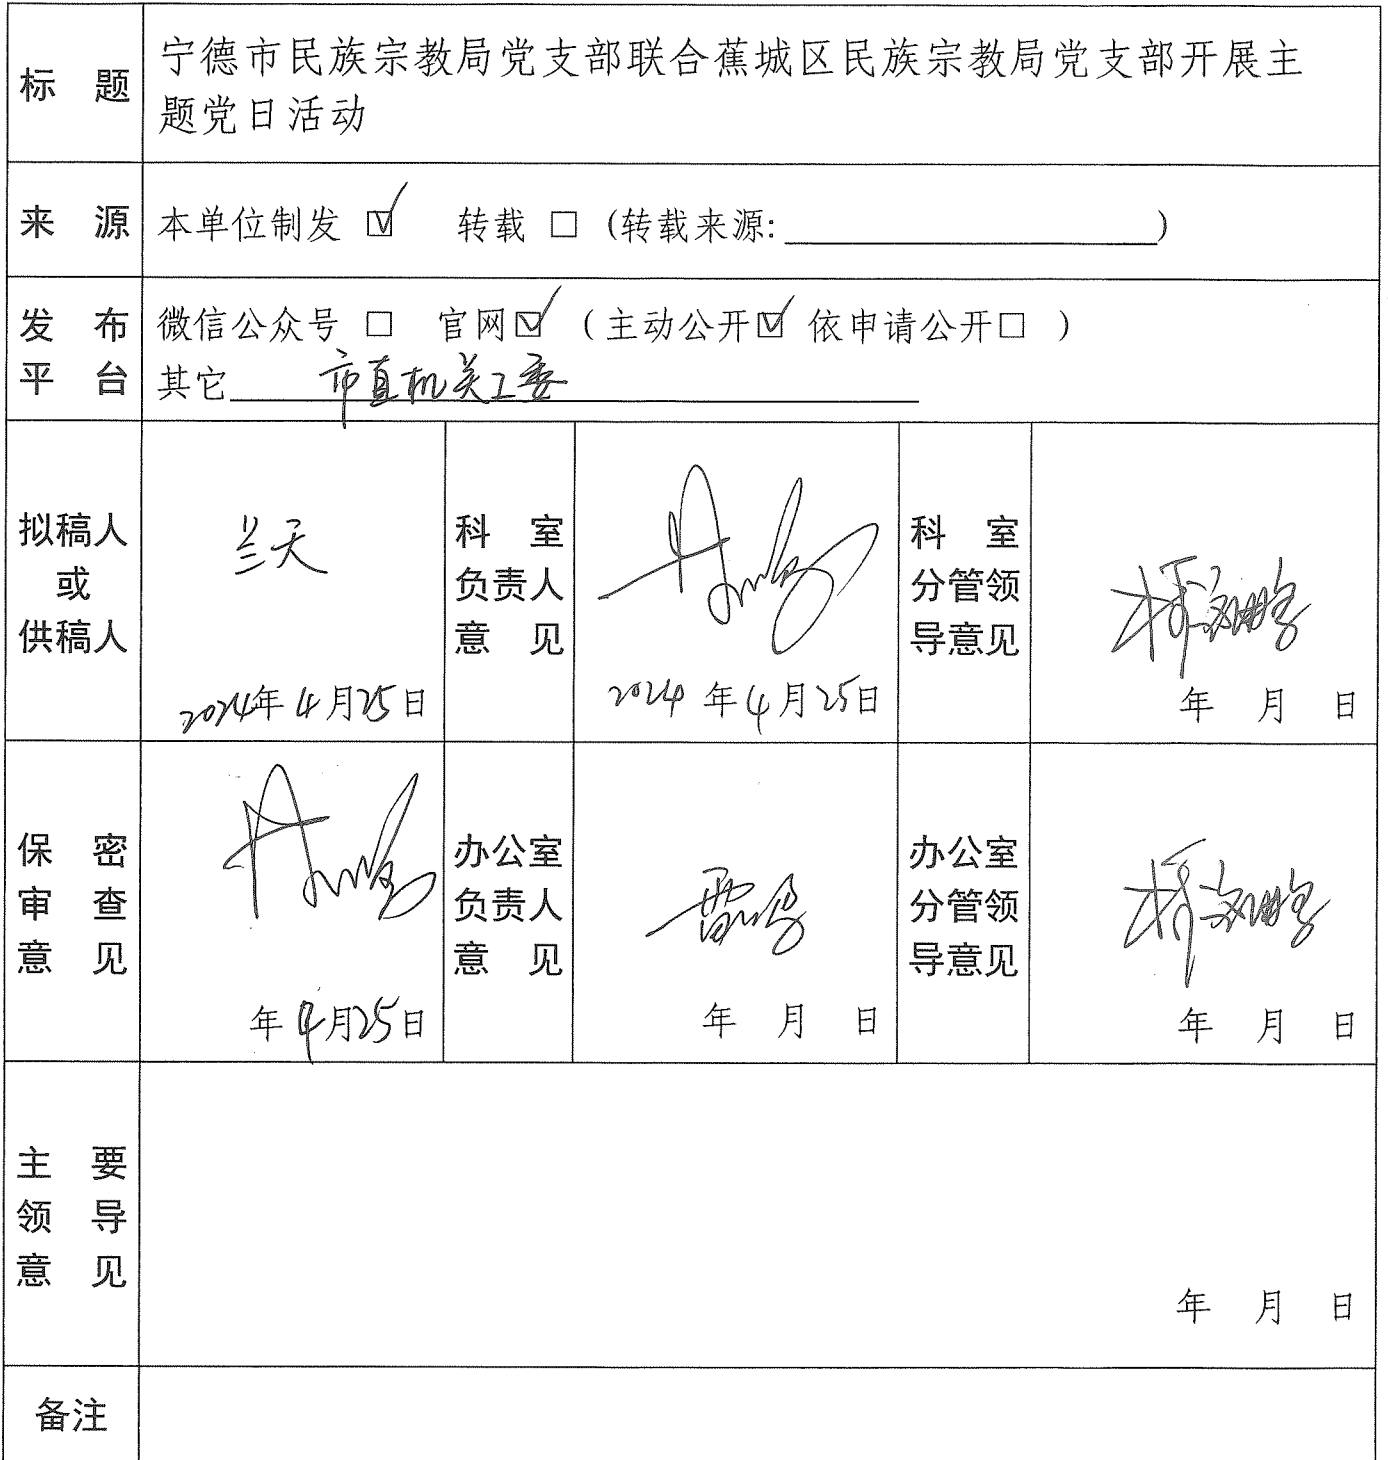 标 题
宁德市民族宗教局党支部联合蕉城区民族宗教局党支部开展主
题党日活动
来 源
本单位制发 ☑ 转载 □ (转载来源: )
发 布
平 台
微信公众号 □ 官网☑ (主动公开☑ 依申请公开□ )
其它 市直机关工委
拟稿人
或
供稿人
兰天
2024年4月25日
科 室
负责人
意 见
2024年4月25日
科 室
分管领
导意见
年 月 日
保 密
审 查
意 见
年4月25日
办公室
负责人
意 见
年 月 日
办公室
分管领
导意见
年 月 日
主 要
领 导
意 见
年 月 日
备注